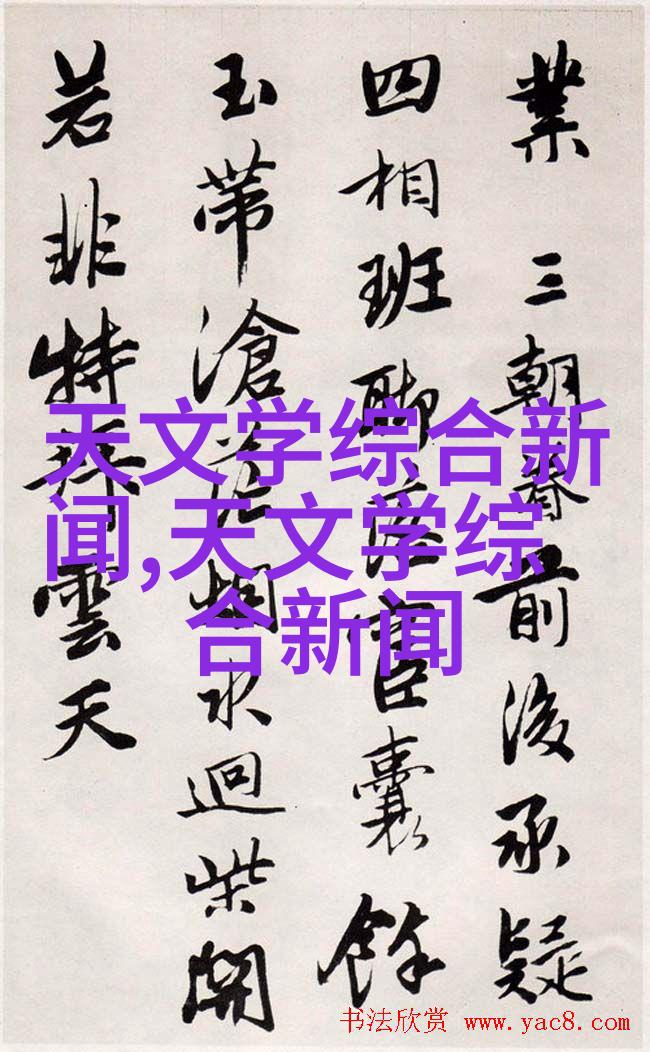 業 三朝眷前後承疑
四相班聯官囊餘
玉帶滄茫烟水迴柴關
若非特雲天
天文学综合新
闻,天文学综
合新闻
书法欣赏 www.yac8.com